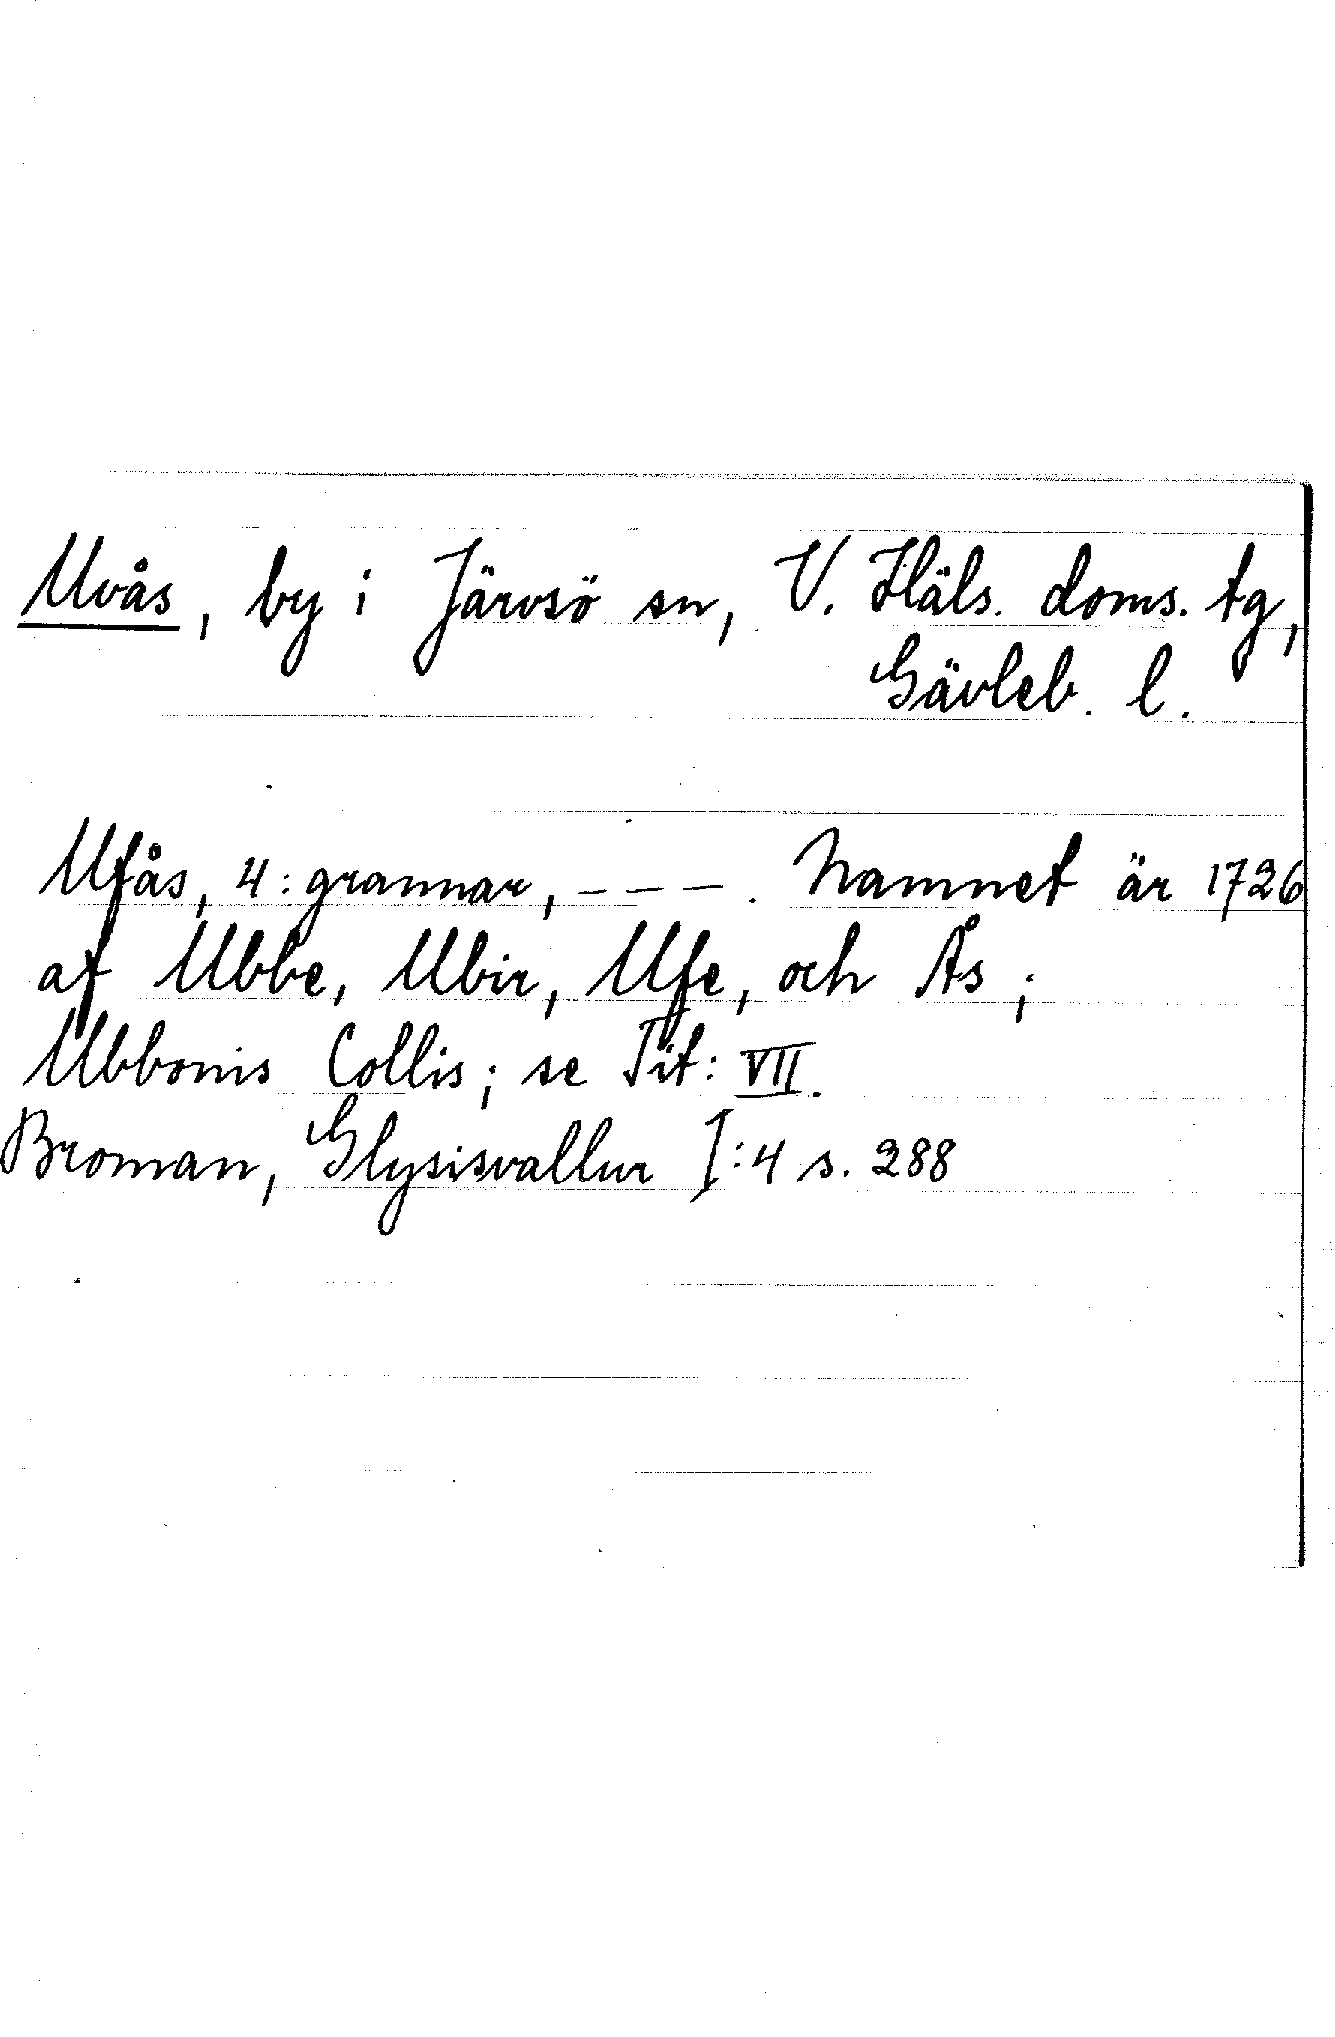 Uvås, by i Järvsö sn, V. Häls. doms. tg,
Gävleb. l.
Ufås, 4: grannar, - - - . Namnet är 1726
af Ubbe, Ubir, Ufe, och Ås;
Ubbonis Collis; se Tit: VII.
Broman, Glysisvallur I:4 s. 288